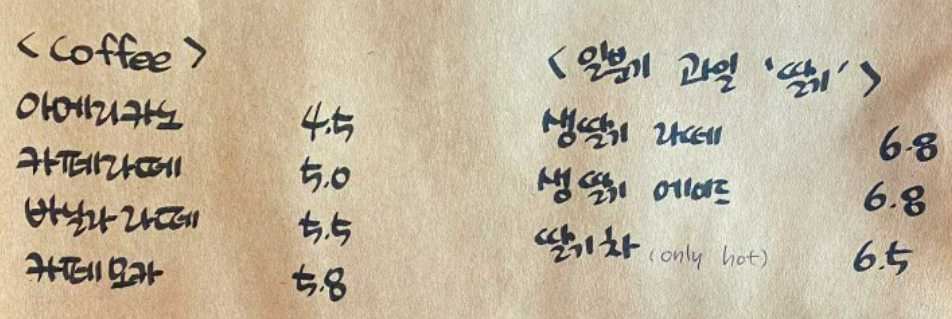 < coffee >
아메리카노 4.5
카페라떼 5.0
바닐라 라떼 5.5
카페모카 5.8
< 일분기 과일 '딸기' >
생딸기 라떼 6.8
생딸기 에이드 6.8
딸기차 (only hot) 6.5